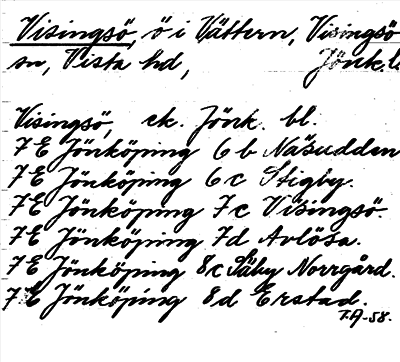 Visingsö, ö i Vättern, Visingsö
sn, Vista hd, Jönk. l
Visingsö, ek. Jönk. bl.
7 E Jönköping 6 b Näsudden
7 E Jönköping 6 c Stigby.
7 E Jönköping 7 c Visingsö
7 E Jönköping 7 d Avlösa.
7 E Jönköping 8 c Säby Norrgård.
7 E Jönköping 8 d Erstad.
-58.